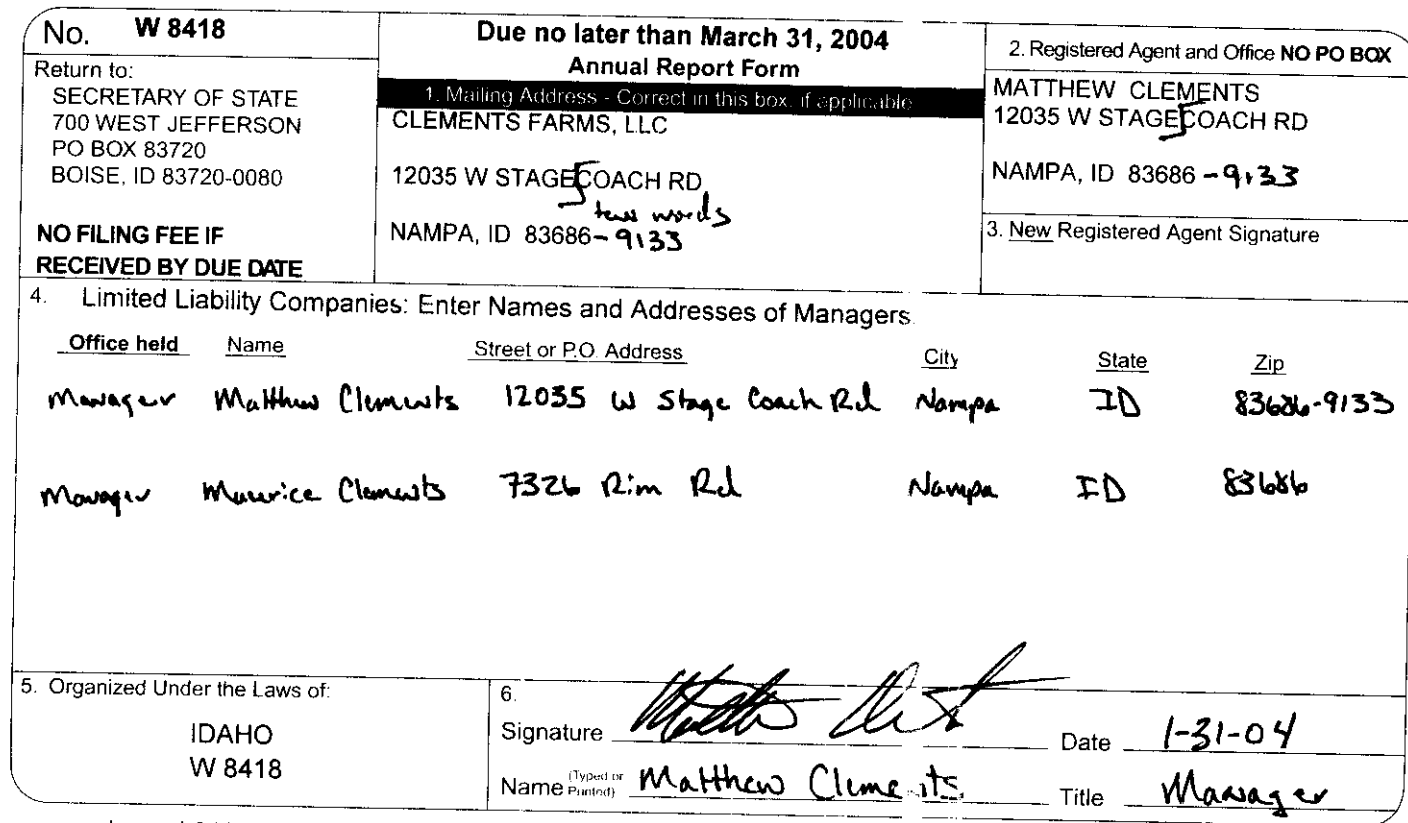 No. W 8418
Return to:
SECRETARY OF STATE
700 WEST JEFFERSON
PO BOX 83720
BOISE, ID 83720-0080
NO FILING FEE IF
RECEIVED BY DUE DATE
Due no later than March 31, 2004
Annual Report Form
1. Mailing Address - Correct in this box, if applicable
CLEMENTS FARMS, LLC
12035 W STAGECOACH RD
two words
NAMPA, ID 83686-9133
2. Registered Agent and Office NO PO BOX
MATTHEW CLEMENTS
12035 W STAGECOACH RD
NAMPA, ID 83686-9133
3. New Registered Agent Signature
4. Limited Liability Companies: Enter Names and Addresses of Managers.
Office held Name Street or P.O. Address City State Zip
Manager Matthew Clements 12035 W Stage Coach Rd Nampa ID 83686-9133
Manager Maurice Clements 7326 Rim Rd Nampa ID 83686
5. Organized Under the Laws of:
IDAHO
W 8418
6.
Signature Date 1-31-04
Name (Typed or Printed) Matthew Clements Title Manager